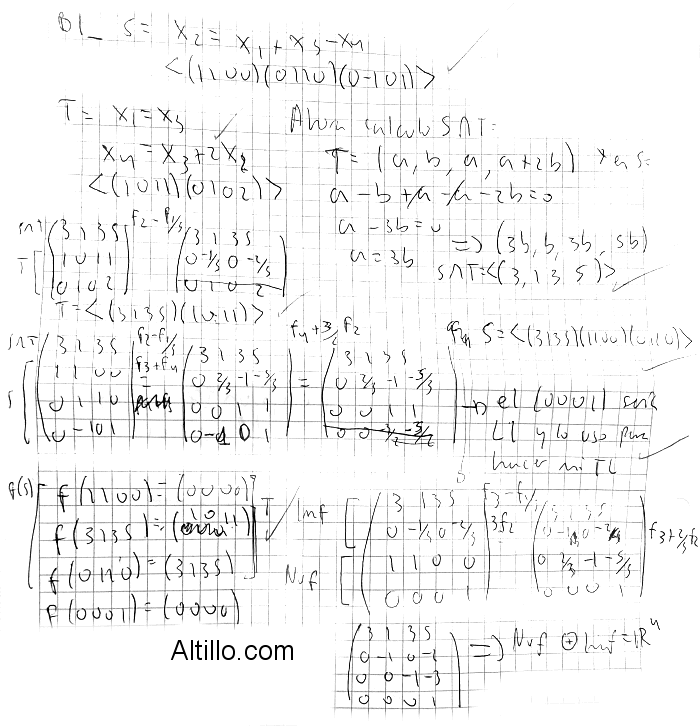 S = X2 = X1 + X3 - X4
<(1100)(0110)(0-101)>
T = X1 = X3
X4 = X3 + 2X2
<(1011)(0102)>
Ahora calculo S∩T =
T = (a, b, a, a+2b) * en S =
a - b + a - a - 2b = 0
a - 3b = 0
a = 3b
=> (3b, b, 3b, 5b)
S∩T = <(3,1 3 5)>
S∩T
T
3 1 3 5
1 0 1 1
0 1 0 2
f2 - f1/3
3 1 3 5
0 -1/3 0 -2/3
0 1 0 2
T = <(3135)(1011)>
S∩T
S
3 1 3 5
1 1 0 0
0 1 1 0
0 -1 0 1
f2 - f1/3
f3 + f4
3 1 3 5
0 2/3 -1 -5/3
0 0 1 1
0 -1 0 1
f4 + 3/2 f2
=
3 1 3 5
0 2/3 -1 -5/3
0 0 1 1
S = <(3135)(1100)(0110)>
el (0001) será
LI y lo uso para
hacer mi TL
f(S)
f(1100) = (0000)
f(3135) = (1011)
f(0110) = (3135)
f(0001) = (0000)
T
Imf
Nuf
3 1 3 5
0 -1/3 0 -2/3
1 1 0 0
0 0 0 1
f3 - f1/3
3f2
3 1 3 5
0 -1 0 -2
0 2/3 -1 -5/3
0 0 0 1
f3 + 2/3 f2
3 1 3 5
0 -1 0 -2
0 0 -1 -3
0 0 0 1
=> Nuf ⊕ Imf = IR4
Altillo.com